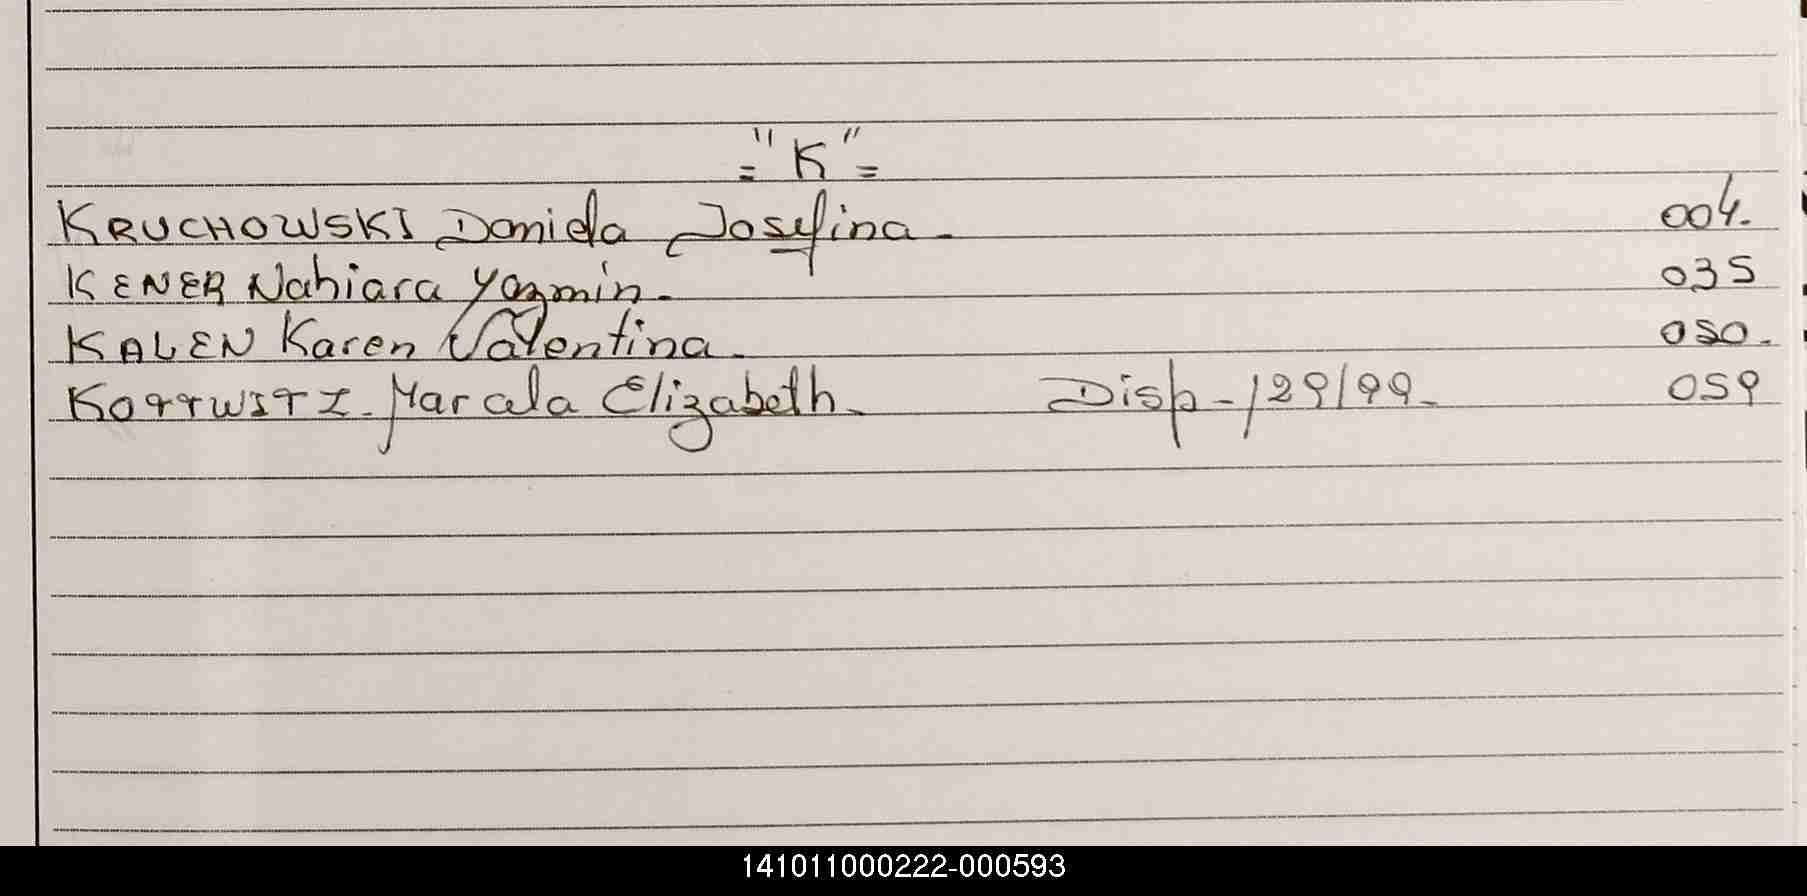 ="K"=
KRUCHOWSKI Daniela Josefina. 004.
KENER Nahiara Yazmin. 035
KALEN Karen Valentina. 050.
KOTTWITZ. Marcala Elizabeth. Disp - 129/99. 059
141011000222-000593